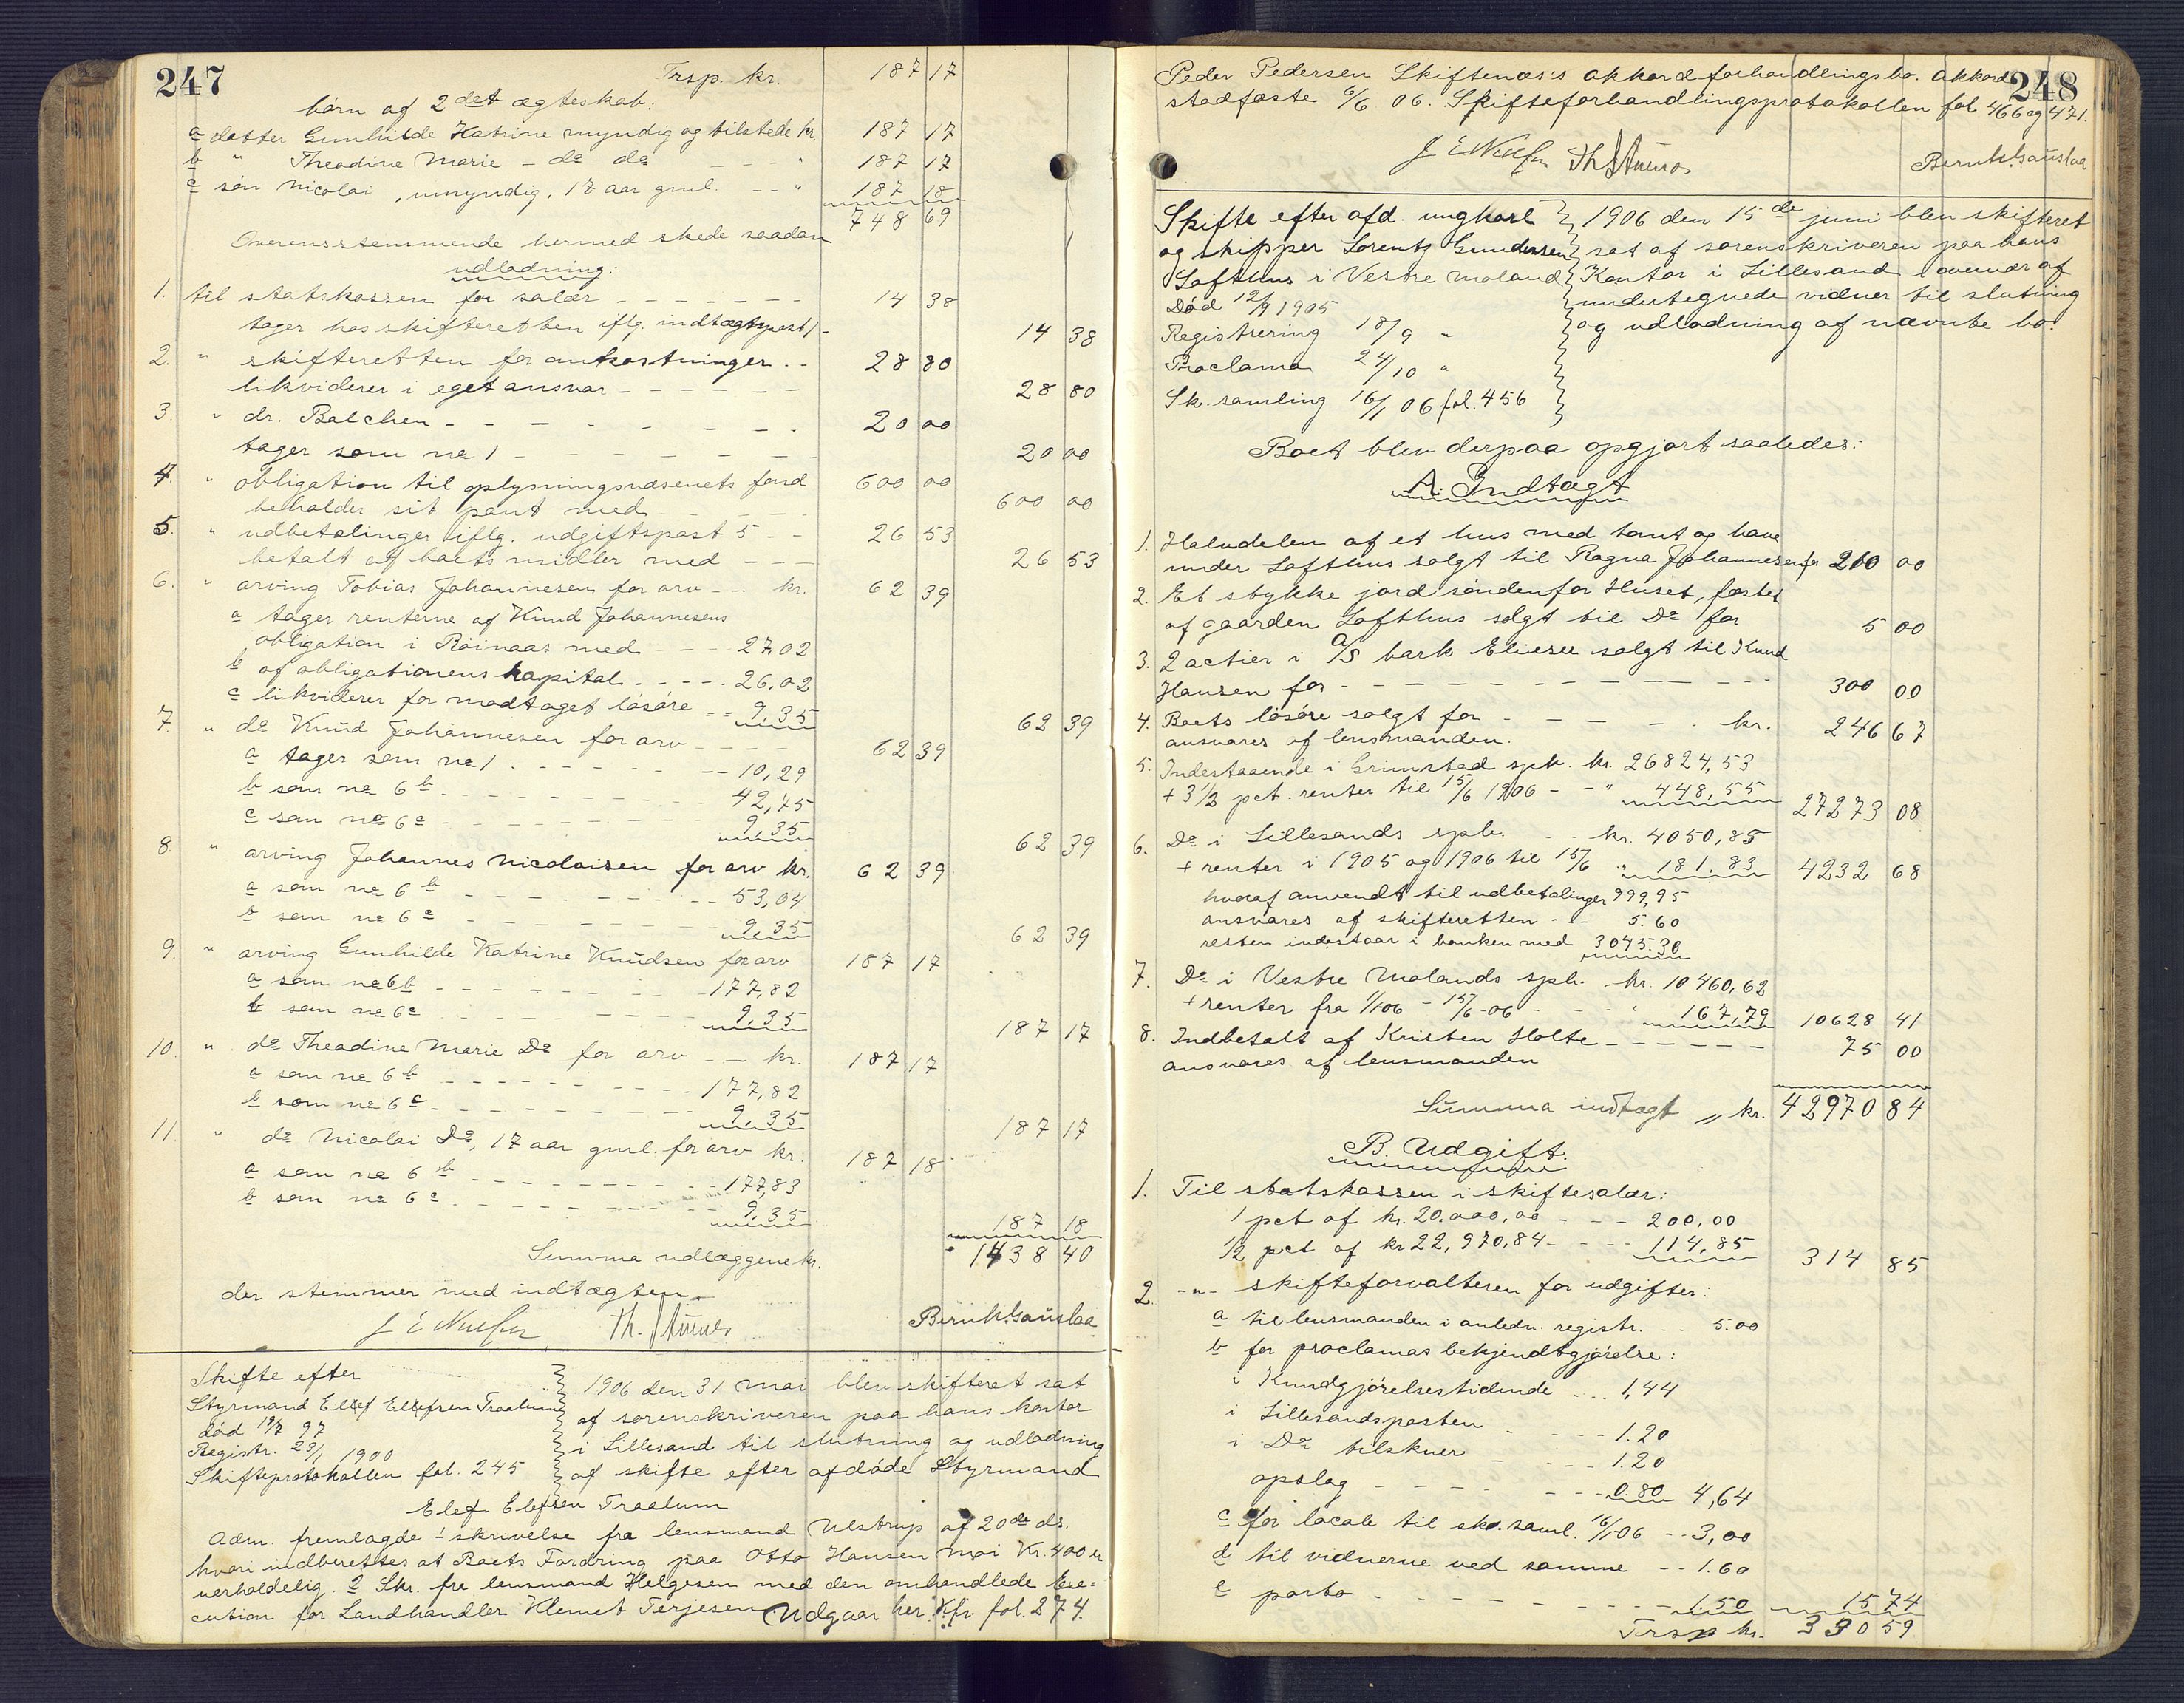 247
Trsp. kr. 187 17
børn af 2det ægteskab:
a datter Gunhilde Katrine myndig og tilstede kr. 187 17
b " Theodine Marie - do do - - - " 187 17
c søn Nicolai, umyndig, 17 aar gml. - - " 187 18
748 69
Overensstemmende hermed skede saadan
udlodning:
1. til statskassen for salær - - - - - - - 14 38
tager hos skifteretten iflg. indtægtspost 1 - 14 38
2. " skifteretten for omkostninger . - 28 80
likviderer i eget ansvar - - - - - 28 80
3. " dr. Balchen - - - - - - - - 20 00
tager som no 1 - - - - - - - 20 00
4. " obligation til oplysningsvæsenets fond 600 00
beholder sit pant med - - - - 600 00
5. " udbetalinger iflg. udgiftspost 5 - - 26 53
betalt af boets midler med - - - 26 53
6. " arving Tobias Johannesen for arv - - kr. 62 39
a tager renterne af Knud Johannesens
obligation i Röinaas med - - - 27,02
b af obligationens kapital - - - - 26,02
c likviderer for modtaget løsøre - - 9,35 62 39
7. " do Knud Johannesen for arv - - - - 62 39
a tager som no 1 - - - - - - - 10,29
b som no 6 b - - - - - - - 42,75
c som no 6 c - - - - - - - 9,35 62 39
8. " arving Johannes Nicolaisen for arv kr. 62 39
a som no 6 b - - - - - - - 53,04
b som no 6 c - - - - - - - 9,35 62 39
9. " arving Gunhilde Katrine Knudsen for arv 187 17
a som no 6 b - - - - - - - 177,82
b som no 6 c - - - - - - - 9,35 187 17
10. " do Theodine Marie Do for arv - - kr. 187 17
a som no 6 b - - - - - - - 177,82
b som no 6 c - - - - - - - 9,35 187 17
11. " do Nicolai Do, 17 aar gml. for arv kr. 187 18
a som no 6 b - - - - - - - 177,83
b som no 6 c - - - - - - - 9,35 187 18
Summa udlæggene kr. 1438 40
der stemmer med indtægten.
Bernh. Gauslaa
Skifte efter
Styrmand Ellef Ellefsen Traalum
død 19/7 97
Registr. 23/1 1900
Skifteprotokollen fol. 245
1906 den 31 mai blev skifteret sat
af sorenskriveren paa hans kontor
i Lillesand til slutning og udlodning
af skifte efter afdøde Styrmand
Elef Elefsen Traalum
Adm. fremlagde 1 skrivelse fra lensmand Ulstrup af 20de ds.
hvori indberettes at Boets Fordring paa Otto Hansen Moi Kr. 400 er
uerholdelig. 2 Skr. fra lensmand Helgesen med den omhandlede Exe=
cution for Landhandler Klemet Terjesen Udgaar her. Kfr. fol. 274.
248
Peder Pedersen Skiftenæs's akkordforhandlingsbo. Akkord
stadfæste 6/6 06. Skifteforhandlingsprotokollen fol 466 og 471.
Bernh. Gauslaa
Skifte efter afd. ungkarl
og skipper Lorents Gundersen
Lofthus i Vestre Moland
Død 12/9 1905
Registrering 18/9 "
Proclama 24/10 "
Sk. samling 16/1 06 fol. 456
1906 den 15de juni blev skifteret
sat af sorenskriveren paa hans
Kontor i Lillesand i overvær af
undertegnede vidner til slutning
og udlodning af nævnte bo.
Boet blev derpaa opgjort saaledes:
A. Indtægt
1. Halvdelen af et hus med tomt og have
under Lofthus solgt til Ragna Johannesen for 210 00
2. Et stykke jord søndenfor Huset, fæstet
af gaarden Lofthus solgt til Do for 5 00
3. 2 actier i A/S bark Elieser solgt til Knud
Hansen for - - - - - - - - - - 300 00
4. Boets løsøre solgt for - - - - - kr. 246 67
ansvares af lensmanden.
5. Indestaaende i Grimstad spb. kr. 26824,53
+ 3 1/2 pct. renter til 15/6 1906 - - " 448,55 27273 08
6. Do i Lillesands spb. - - kr. 4050,85
+ renter i 1905 og 1906 til 15/6 " 181.83 4232 68
hvoraf anvendt til udbetalinger 999,95
ansvares af skifteretten - - 5.60
resten indestaar i banken med 3045.30
7. Do i Vestre Molands spb. - kr. 10460,62
+ renter fra 1/1 06 - 15/6 06 - - " 167,79 10628 41
8. Indbetalt af Kristen Holte - - - - - - 75 00
ansvares af lensmanden
Summa indtægt " kr. 42970 84
B. Udgift.
1. Til statskassen i skiftesalær:
1 pct af kr. 20.000,00 - - - 200,00
1/2 pct af kr 22,970,84 - - - - 114,85 314 85
2. -"- skifteforvalteren for udgifter:
a til lensmanden i anledn. registr. - - 5.00
b for proclamas bekjendtgjørelse:
i Kundgjørelsestidende - - - 1,44
i Lillesandsposten - - - - 1.20
i Do tilskuer - - - - 1.20
opslag - - - - - - - 0.80 4,64
c for locale til sk. saml. 16/1 06 - - 3,00
d til vidnerne ved samme - - 1.60
e porto - - - - - - - - 1.50 15.74
Trsp kr. 330 59